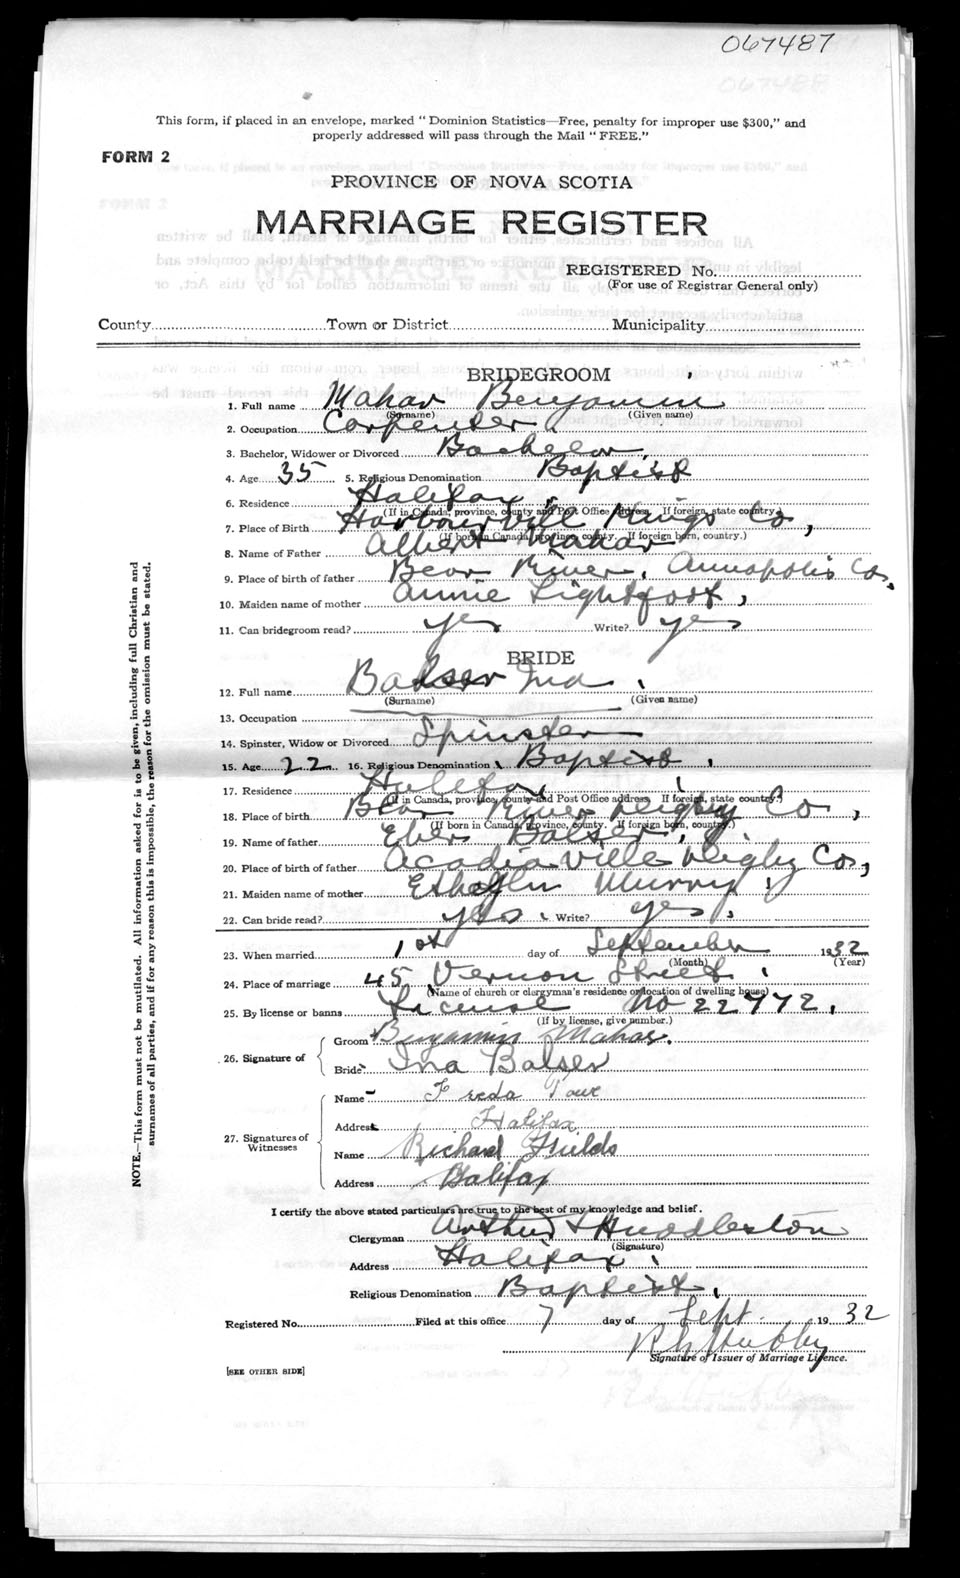 067487
This form, if placed in an envelope, marked "Dominion Statistics—Free, penalty for improper use $300," and
properly addressed will pass through the Mail "FREE."
FORM 2
PROVINCE OF NOVA SCOTIA
MARRIAGE REGISTER
REGISTERED No.
(For use of Registrar General only)
County Town or District Municipality
BRIDEGROOM
1. Full name Mahar Benjamin
(Surname) (Given name)
2. Occupation Carpenter
3. Bachelor, Widower or Divorced Bachelor
4. Age 35 5. Religious Denomination Baptist
6. Residence Halifax
(If in Canada, province, county and Post Office address. If foreign, state country)
7. Place of Birth Harbourvill Kings Co,
(If born in Canada, province, county. If foreign born, country.)
8. Name of Father Albert Mahar
9. Place of birth of father Bear River, Annapolis Co,
10. Maiden name of mother Annie Lightfoot,
11. Can bridegroom read? yes Write? yes
BRIDE
12. Full name Balser Ina
(Surname) (Given name)
13. Occupation
14. Spinster, Widow or Divorced Spinster
15. Age 22 16. Religious Denomination Baptist
17. Residence Halifax
(If in Canada, province, county and Post Office address. If foreign, state country.)
18. Place of birth Bear River Digby Co,
(If born in Canada, province, county. If foreign born, country.)
19. Name of father Eber Balser
20. Place of birth of father Acadiaville Digby Co,
21. Maiden name of mother Murry
22. Can bride read? yes Write? yes
23. When married 1st day of September 1932
(Month) (Year)
24. Place of marriage 45 Vernon Street
(Name of church or clergyman's residence or location of dwelling house)
25. By license or banns License No 22972.
(If by license, give number.)
26. Signature of
Groom Benjamin Mahar.
Bride Ina Balser
27. Signatures of Witnesses
Name Freda
Address Halifax
Name Richard Fields
Address Halifax
I certify the above stated particulars are true to the best of my knowledge and belief.
Clergyman Arthur Huddleston
(Signature)
Address Halifax
Religious Denomination Baptist
Registered No. Filed at this office 7 day of Sept 1932
Signature of Issuer of Marriage Licence.
[SEE OTHER SIDE]
NOTE.—This form must not be mutilated. All information asked for is to be given, including full Christian and
surnames of all parties, and if for any reason this is impossible, the reason for the omission must be stated.